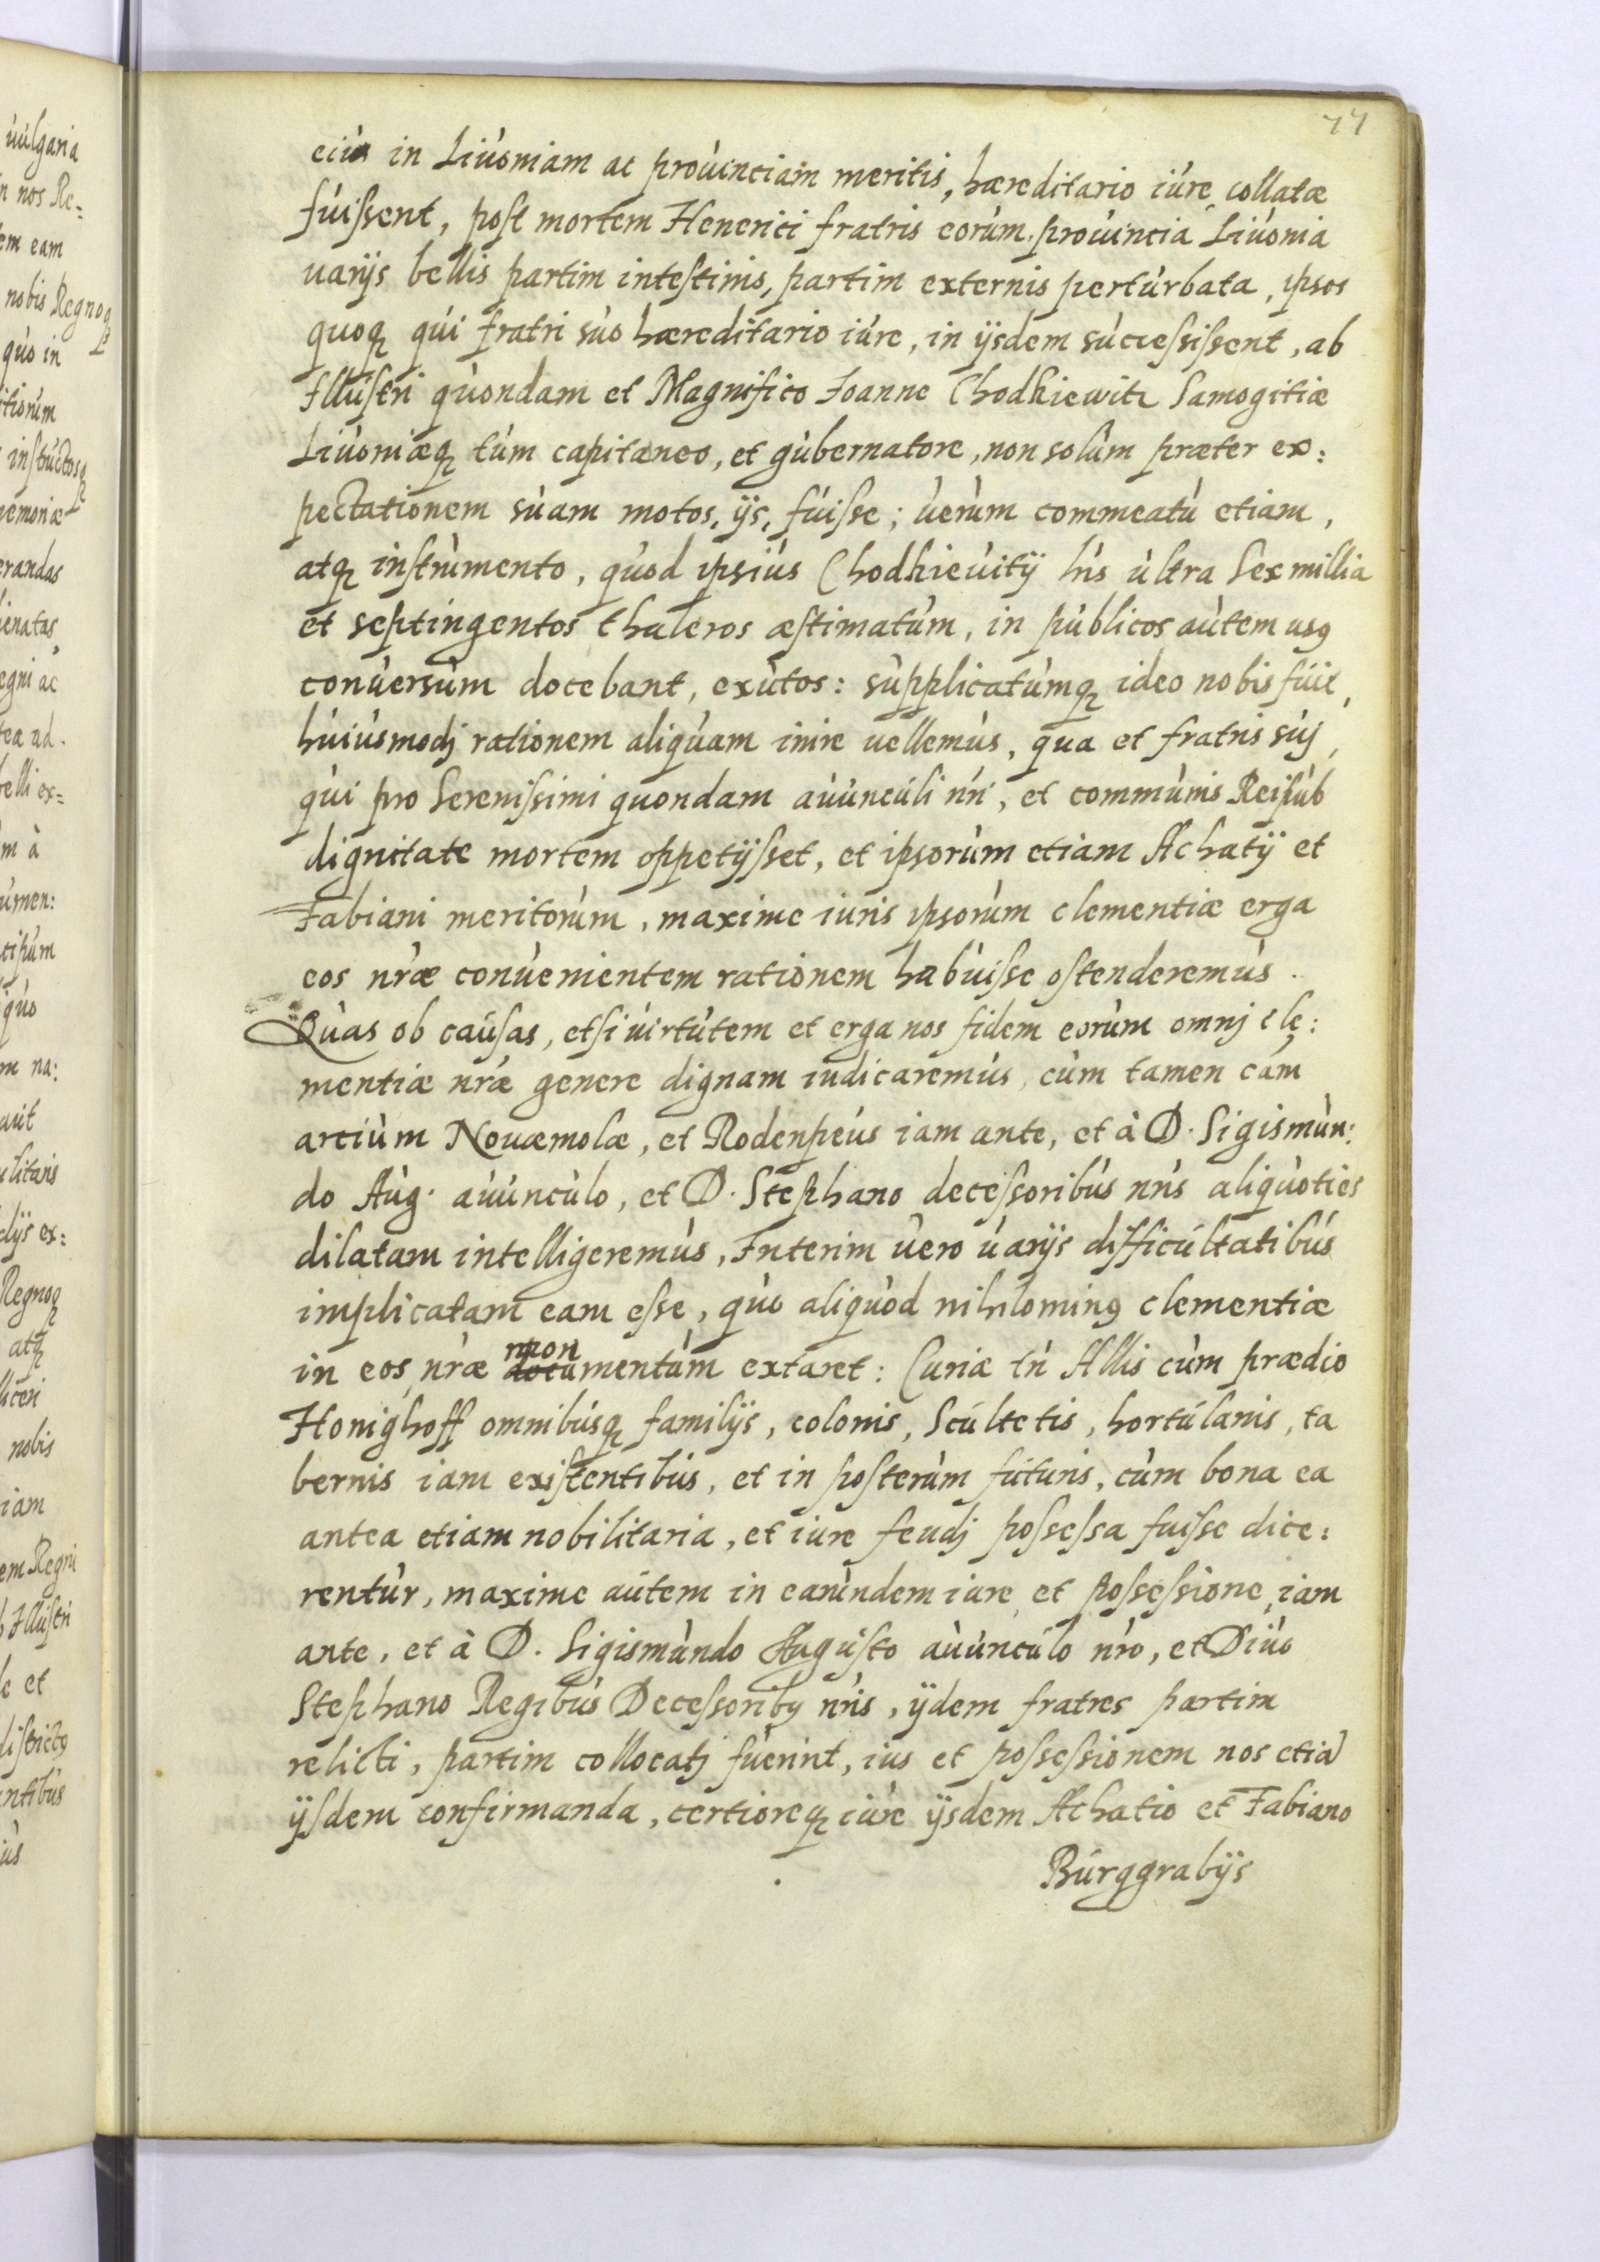 77
eius in Liuoniam ac prouinciam meritis, hæreditario iure collatæ
fuissent, post mortem Henerici fratris eorum prouincia Liuonia
uarijs bellis partim intestinis, partim externis perturbata, ipsos
quoq; qui fratri suo hæreditario iure, in ijsdem successissent, ab
Illustri quondam et Magnifico Ioanne Chodkiewitz Samogitiæ
Liuoniæq; tum capitaneo, et gubernatore, non solum præter ex:
pectationem suam motos, ijs, fuisse; uerum commeatu etiam,
atq; instrumento, quod ipsius Chodkieuitij lris ultra Sex millia
et septingentos thaleros æstimatum, in publicos autem usq
conuersum docebant, exutos: supplicatumq; ideo nobis fuit,
huiusmodj rationem aliquam inire uellemus, qua et fratris suj,
qui pro Serenissimi quondam auunculi nri, et communis Reipub
dignitate mortem oppetijsset, et ipsorum etiam Achatij et
Fabiani meritorum, maxime iuris ipsorum clementiæ erga
eos nræ conuenientem rationem habuisse ostenderemus.
Quas ob causas, etsi uirtutem et erga nos fidem eorum omnj cle:
mentiæ nræ genere dignam iudicaremus, cum tamen cam
arcium Nouæmolæ, et Rodenpeus iam ante, et à D. Sigismun:
do Aug. auunculo, et D. Stephano decessoribus nris aliquoties
dilatam intelligeremus, Interim uero uarijs difficultatibus
implicatam eam esse, quo aliquod nihiloming clementiæ
in eos nræ documentum extaret: Curiæ tn Allis cum prædio
Honighoff omnibusq; familijs, colonis, Scultetis, hortulanis, ta
bernis iam existentibus, et in posterum futuris, cum bona ea
antea etiam nobilitaria, et iure feudj possessa fuisse dice:
rentur, maxime autem in earundem iure et possessione iam
ante, et à D. Sigismundo Augusto auunculo nro, et Diuo
Stephano Regibus Decessoribg nris, ijdem fratres partim
relicti, partim collocatj fuerint, ius et possessionem nos etiã
ijsdem confirmanda, certioreq; iure ijsdem Achatio et Fabiano
Burggrabijs